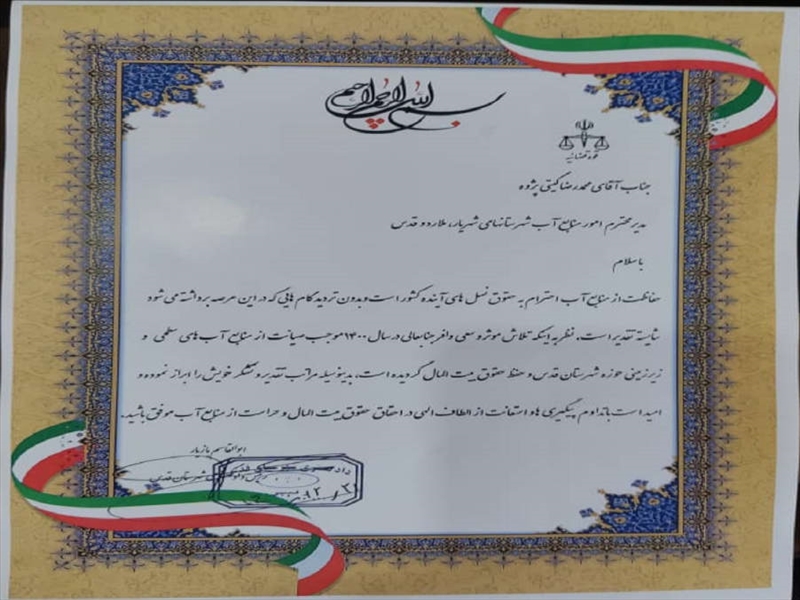 بسم الله الرحمن الرحیم
قوه قضائیه
جناب آقای محمدرضا گیتی پژوه
مدیر محترم امور منابع آب شهرستانهای شهریار، ملارد و قدس
با سلام
حفاظت از منابع آب احترام به حقوق نسل های آینده کشور است و بدون تردید گام هایی که در این عرصه برداشته می شود
شایسته تقدیر است. نظر به اینکه تلاش موثر و سعی وافر جنابعالی در سال ۱۴۰۰ موجب صیانت از منابع آب های سطحی و
زیرزمینی حوزه شهرستان قدس و حفظ حقوق بیت المال گردیده است، بدینوسیله مراتب تقدیر و تشکر خویش را ابراز نموده و
امید است با تداوم پیگیری ها و استعانت از الطاف الهی در احقاق حقوق بیت المال و حراست از منابع آب موفق باشید.
ابوالقاسم بازیار
شهرستان قدس